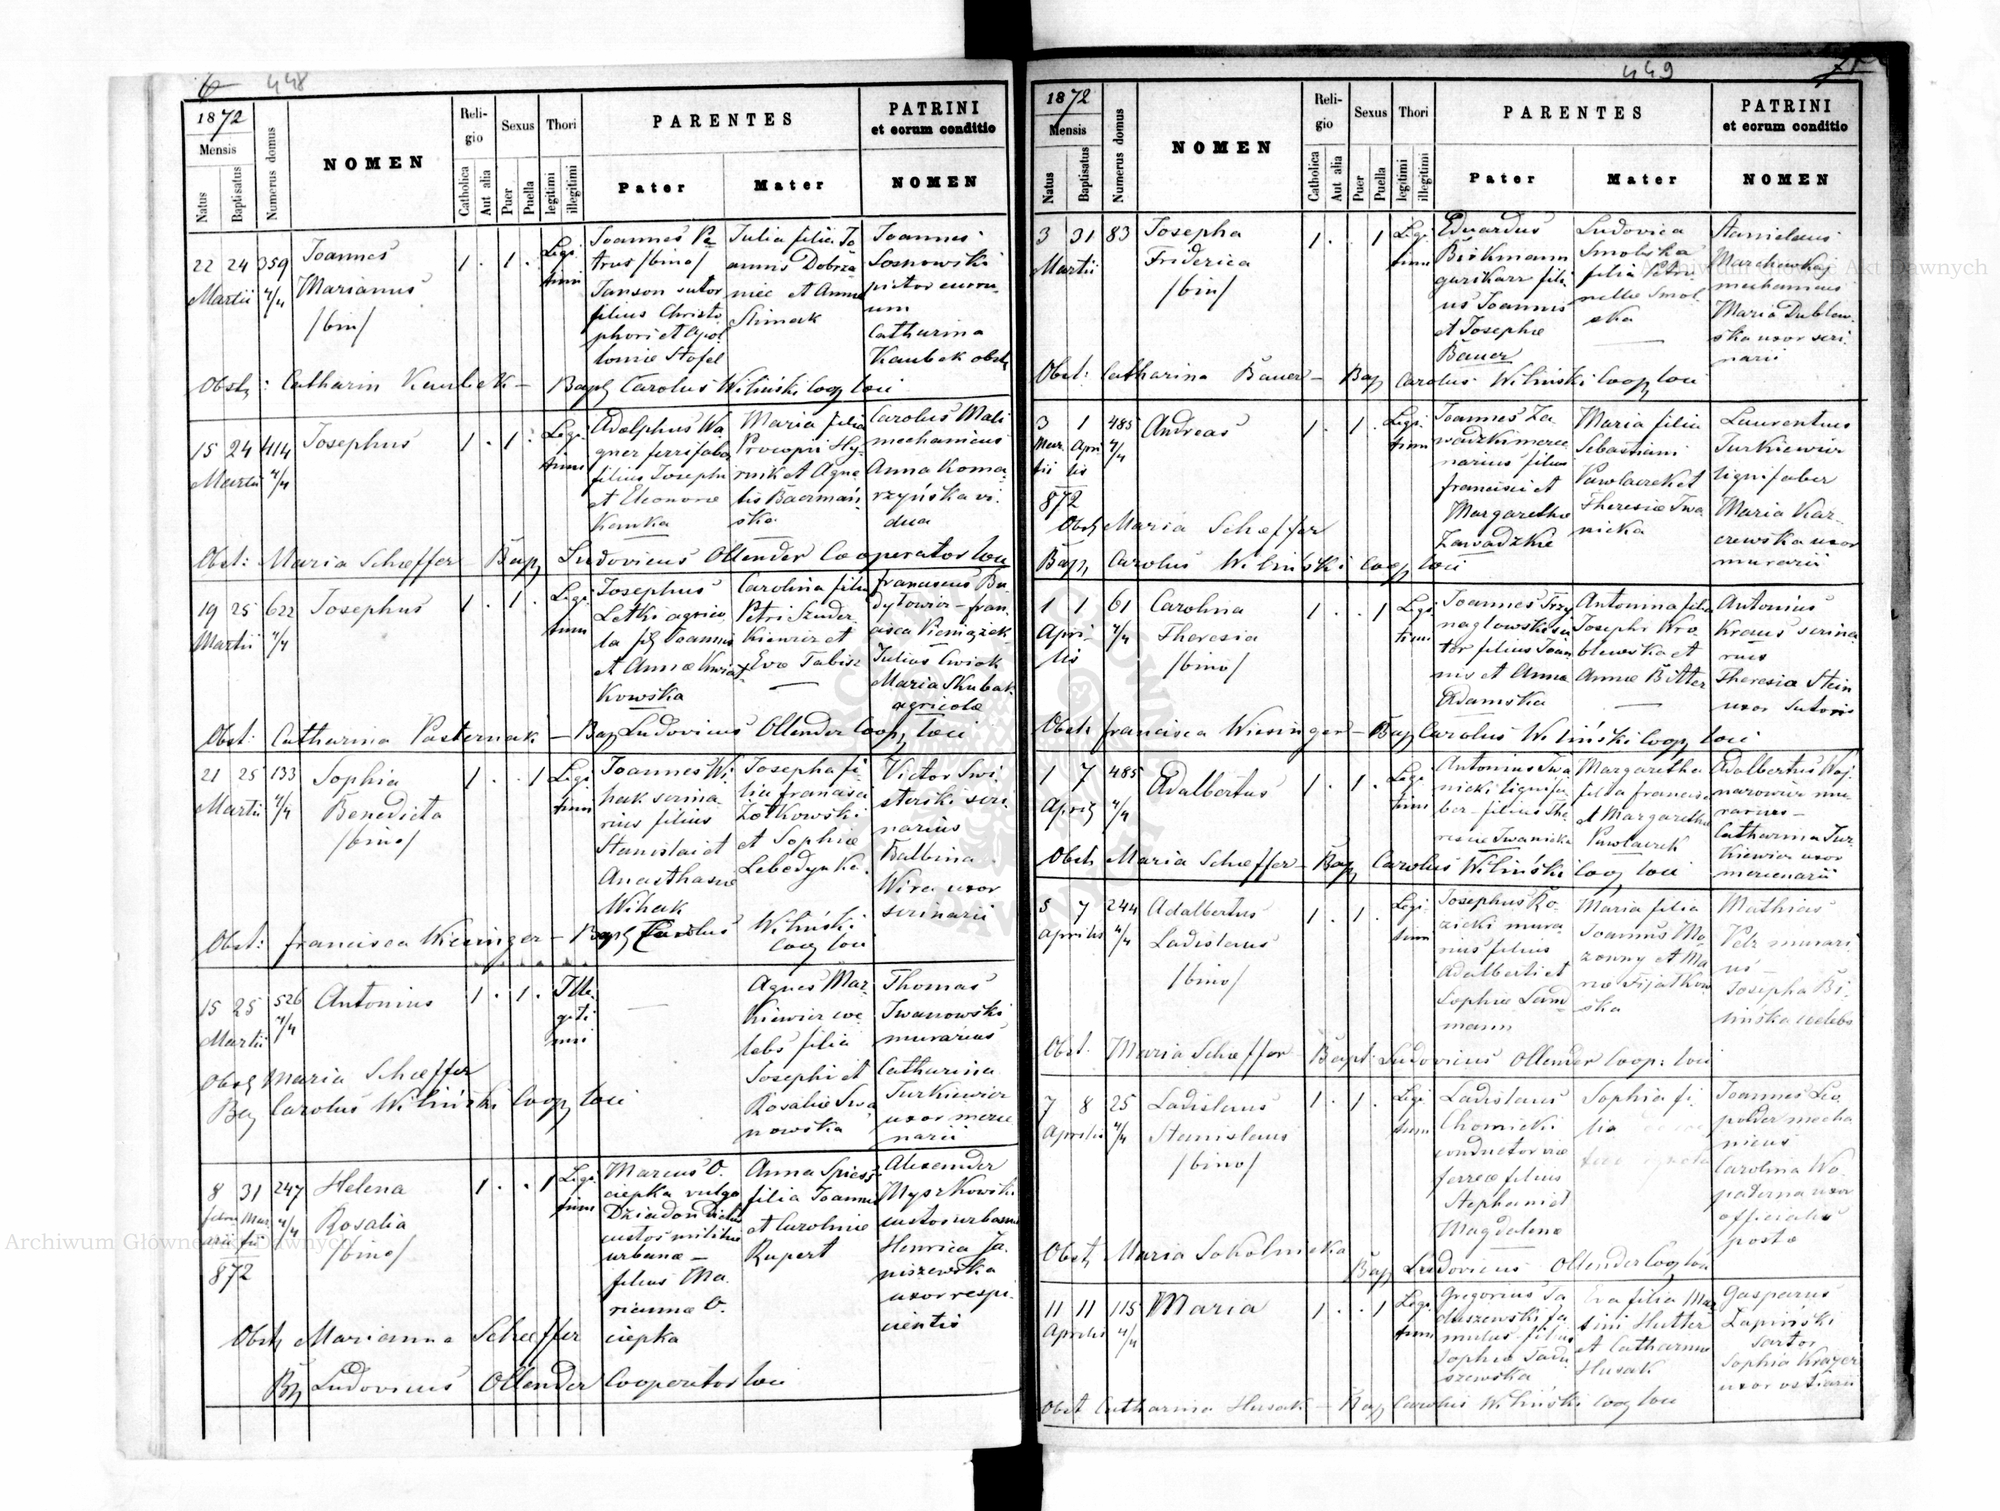 6 448
1872
Mensis
Natus
Baptisatus
Numerus domus
NOMEN
Reli-
gio
Catholica
Aut alia
Sexus
Puer
Puella
Thori
legitimi
illegitimi
PARENTES
Pater
Mater
PATRINI
et eorum conditio
NOMEN
22 24 359 Joannes 1 . 1 . Legi
Martii 4/4 Marianus timi
/bin/
Joannes Pe
trus /bino/
Janson sutor
filius Christo
phori et Apol
loniæ Stofel
Julia filia Jo
annis Dobrza
niec et Annæ
Slimak
Joannes
Sosnowski
pictor curru-
um
Catharina
Kaubek obst
Obst: Catharin Kaubek — Bapt Carolus Wiliński Coop loci
15 24 414 Josephus 1 . 1 . Legi
Martii 4/4 timi
Adolphus Wa
gner ferrifaber
filius Josephi
et Eleonoræ
Kamka
Maria filia
Procopii Hy-
rnik et Agne
tis Baerman
ska
Carolus Mali
mechanicus
Anna Koma
rzyńska vi-
dua
Obst: Maria Schæffer Bapt Ludovicus Ollender Cooperator loci
19 25 622 Josephus 1 . 1 . Legi
Martii 4/4 timi
Josephus
Letki agrico
la fil Joannis
et Annæ Kwiat
kowska
Carolina filia
Petri Szuder
kiewicz et
Evæ Tabisz
Franciscus Bu
dytowicz – Fran-
cisca Pieniążek
Julius Cwiok
Maria Skubak
agricolæ
Obst: Catharina Pasternak — Bap Ludovicus Ollender Coop loci
21 25 133 Sophia 1 . . 1 Legi
Martii 4/4 Benedicta timi
/bino/
Joannes Wi
hak scrina-
rius filius
Stanislai et
Anasthasiæ
Wihak
Josepha fi-
lia Francisci
Zołkowski
et Sophiæ
Lebedynka
Victor Swi
sterski scri
narius
Balbina
Wira uxor
scrinarii
Obst: Francisca Wiesinger — Bapt Carolus Wiliński
Coop loci
15 25 526 Antonius 1 . 1 . Ille-
Martii 4/4 giti
mi
—
Agnes Mar-
kiewicz cœ
lebs filia
Josephi et
Rosaliæ Iwa
nowska
Thomas
Iwanowski
murarius
Catharina
Turkiewicz
uxor merce
narii
Obst Maria Schæffer
Bap Carolus Wiliński Coop loci
8 31 247 Helena 1 . . 1 Legi
Febru Mar 4/4 Rosalia timi
arii tii /bino/
872
Marcus O-
ciepka vulgo
Dziadon dictus
custos militiæ
urbanæ —
filius Ma-
riannæ O-
ciepka
Anna Spiess
filia Joannis
et Carolinæ
Rupert
Alexander
Myszkowski
custos urbanus
Henrica Ja-
niszewska
uxor respi-
cientis
Obst Marianna Schæffer
Bap Ludovicus Ollender Cooperator loci
449
1872
Mensis
Natus
Baptisatus
Numerus domus
NOMEN
Reli-
gio
Catholica
Aut alia
Sexus
Puer
Puella
Thori
legitimi
illegitimi
PARENTES
Pater
Mater
PATRINI
et eorum conditio
NOMEN
3 31 83 Josepha 1 . . 1 Legi
Martii Friderica timi
/bin/
Eduardus
Birkmann
filius
Joannis
et Josephæ
Bauer
Ludovica
Smolska
filia Petro
nellæ Smol
ska
Stanislaus
mechanicus
uxor scri-
narii
Obst: Catharina Bauer — Bap Carolus Wiliński Coop loci
3 1 485 Andreas 1 . 1 . Legi
Mar Apri 4/4 timi
tii lis
872
Joannes Za-
wadzki merce
narius filius
Francisci et
Margarethæ
Zawadzkie
Maria filia
Sebastiani
Pawlaczek et
Theresiæ Iwa
nicka
Laurentius
Turkiewicz
lignifaber
Maria Kar-
czewska uxor
murarii
Obst Maria Schæffer
Bap Carolus Wiliński Coop loci
1 1 61 Carolina 1 . . 1 Legi
Apri- 4/4 Theresia timi
lis /bino/
Joannes Trzy
naglowski su
tor filius Joan
nis et Anna
Adamska
Antonina filia
Josephi Wro
blewska et
Annæ Bitter
Antonius
Kraus scrina
rius
Theresia Stein
uxor Sutoris
Obst Francisca Wiesinger — Bap Carolus Wiliński Coop loci
1 7 485 Adalbertus 1 . 1 . Legi
April 4/4 timi
Antonius Iwa
nicki lignifa-
ber filius The
resiæ Iwanicka
Margaretha
filia Francisci
et Margarethæ
Pawlaczek
Adalbertus Woj
narowicz mu-
rarius —
Catharina Tur-
kiewicz uxor
mercenarii
Obst Maria Schæffer — Bap Carolus Wiliński Coop loci
5 7 244 Adalbertus 1 . 1 . Legi
Aprilis 4/4 Ladislaus timi
/bino/
Josephus Ro-
zicki mura
rius filius
Adalberti et
Sophiæ Land
mann
Maria filia
Joannis Ma
zonny et Ma
riæ Fijatkow
ska
Mathias
Pelz murari
us —
Josepha Bi-
lińska cœlebs
Obst. Maria Schæffer Bapt: Ludovicus Ollender Coop: loci
7 8 25 Ladislaus 1 . 1 . Legi
Aprilis 4/4 Stanislaus timi
/bino/
Ladislaus
Chomicki
conductor viæ
ferreæ filius
Stephani et
Magdalenæ
Sophia fi-
lia
Joannes Leo
polder mecha
nicus
Carolina Wo
paterna uxor
officialis
postæ
Obst Maria Sokolnicka
Bap Ludovicus Ollender Coop loci
11 11 115 Maria 1 . . 1 Legi
Aprilis 4/4 timi
Gregorius Ta
duszewski fa
mulus filius
Sophiæ Tadu
szewska
Eva filia Mar
tini Hutter
et Catharinæ
Husak
Gasparus
Lapiński
sartor
Sophia Krayer
uxor ostiarii
Obst Catharina Husak — Bap Carolus Wiliński Coop loci
Archiwum Główne Akt Dawnych
Archiwum Główne Akt Dawnych